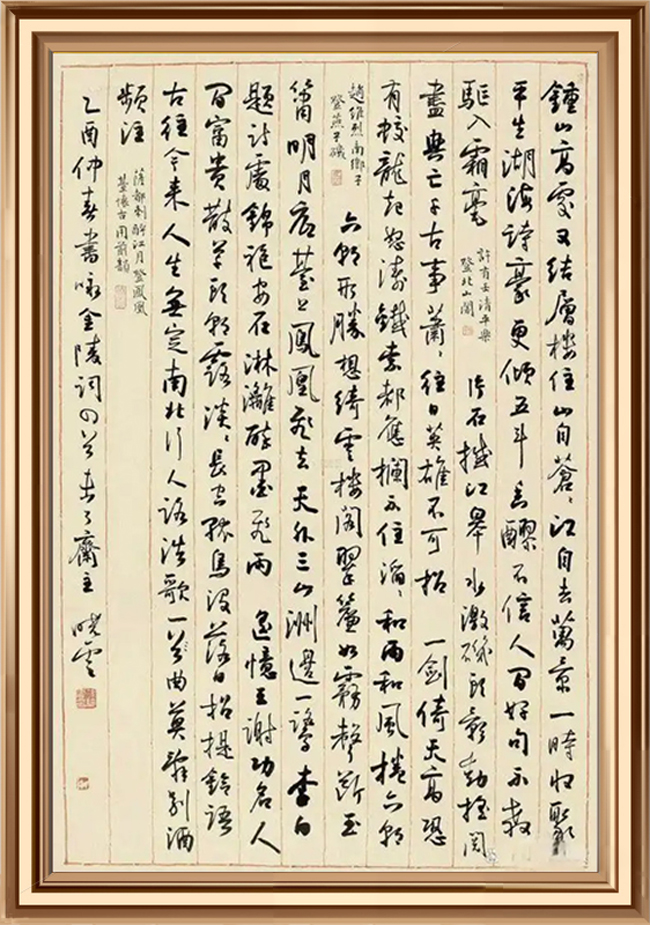 鍾山高處又結層樓住山自蒼〻江自去萬景一時收聚
平生湖海詩豪更傾五斗香醪不信人間好句不教
驅入霜毫
許有壬清平樂
登北山閣
片石撼江皋水激磯頭影動搖閱
盡興亡千古事蕭〻往日英雄不可招一劍倚天高恐
有蛟龍起怒濤鐵索都應攔不住滔〻和雨和風捲六朝
趙維烈南鄉子
登燕子磯
六朝形勝想綺雲樓閣翠簾如霧聲斷玉
簫明月底臺上鳳凰飛去天外三山洲邊一鷺李白
題詩處錦袍安在淋灕醉墨飛雨遙憶王謝功名人
間富貴散草頭朝露淡〻長空孤鳥沒落日招提鈴語
古往今來人生無定南北行人路浩歌一曲莫辭別酒
頻注
薩都剌酹江月登鳳凰
臺懷古用前韻
乙酉仲春書咏金陵詞四首了齋主曉雲